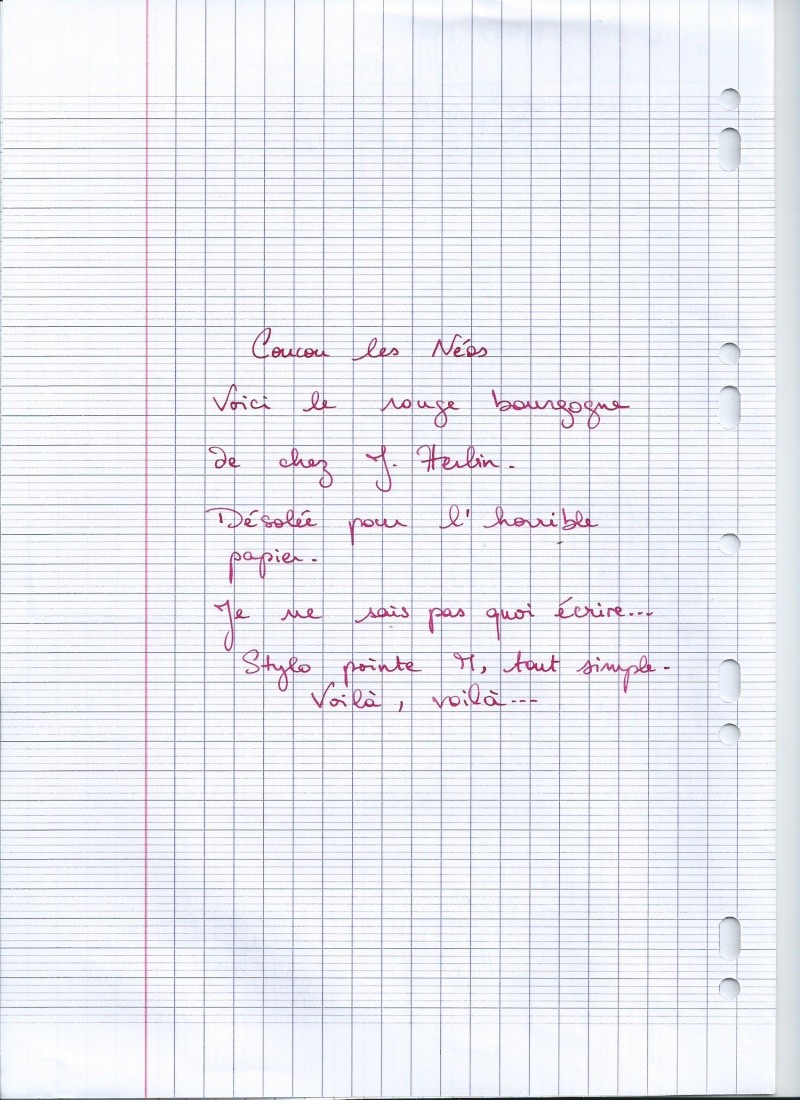 Coucou les Néos
Voici le rouge bourgogne
de chez J. Herbin.
Désolée pour l'horrible
papier.
Je ne sais pas quoi écrire...
Stylo pointe M, tout simple.
Voilà, voilà...